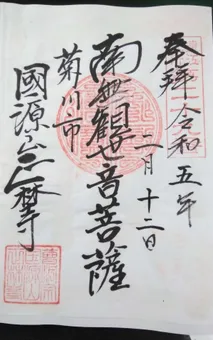 奉拝 令和五年
二月十二日
南無観世音菩薩
菊川市
國源山正暦寺